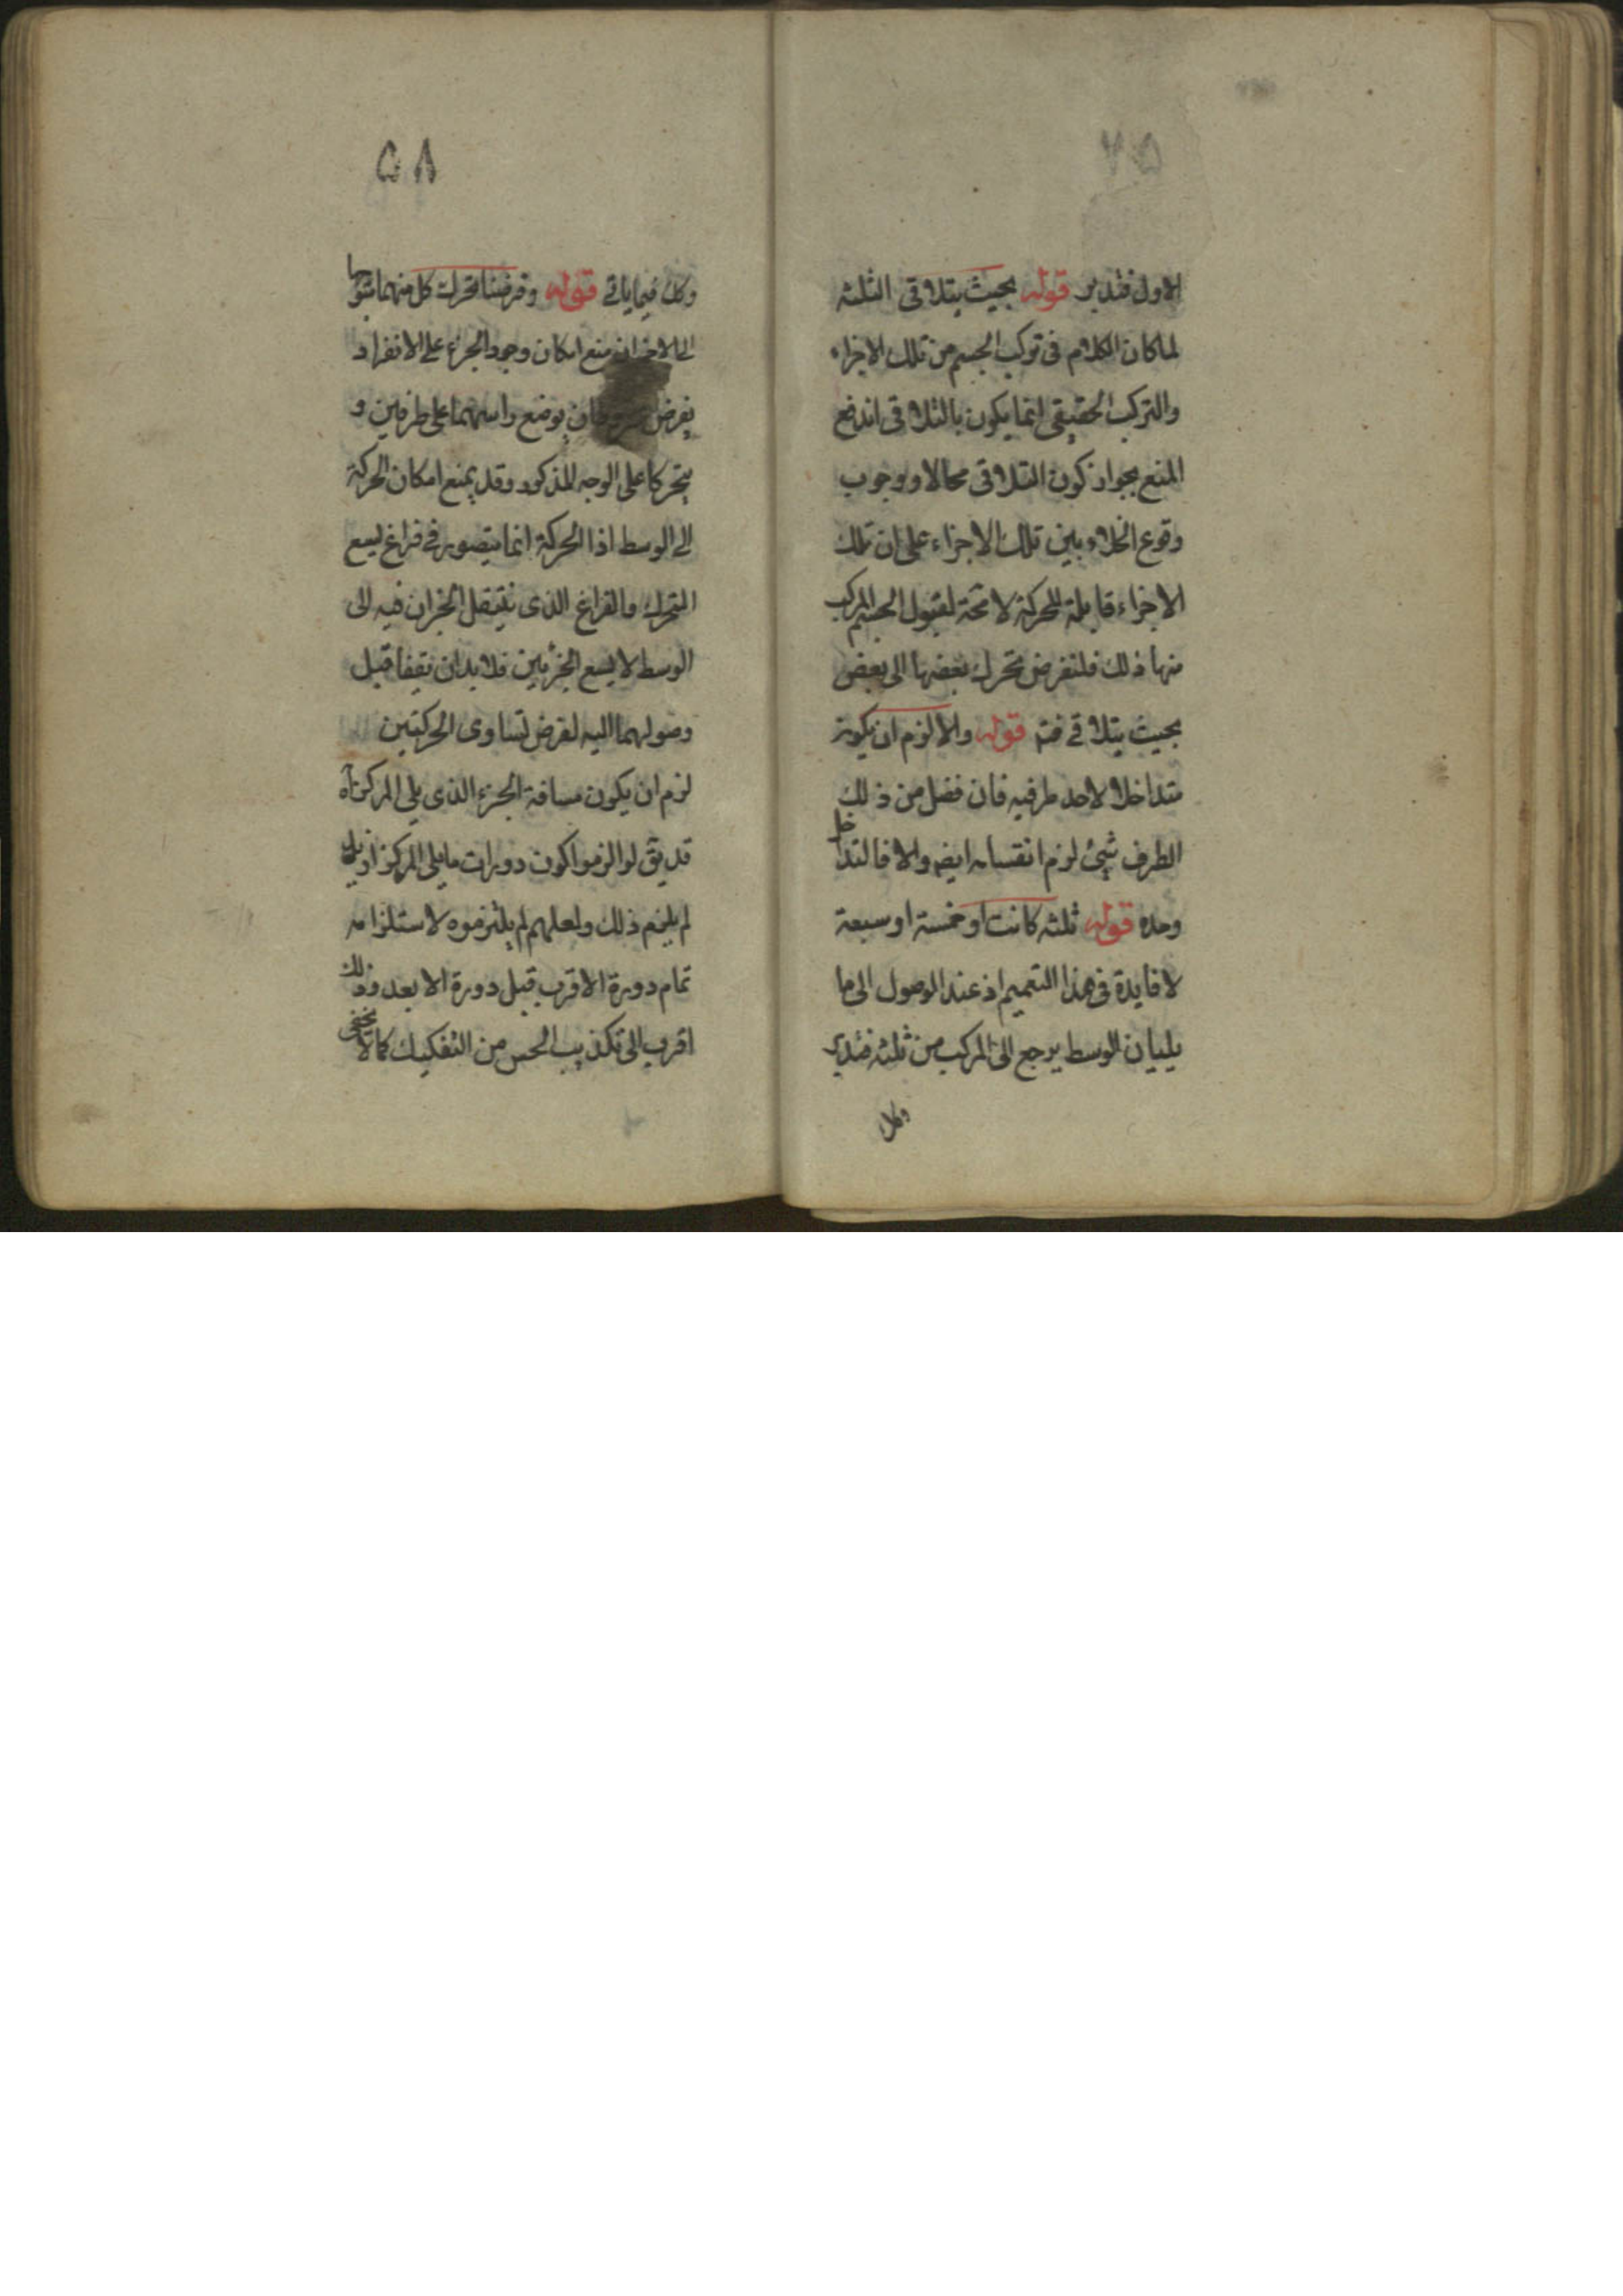 الاول فتدبر قوله بحيث يتلاقى الثلثه
لما كان الكلام فى تركب الجسم من تلك الاجزاء
والتركب الحقيقى انما يكون بالتلاقى اندفع
المنع بجواز كون التلاقى محالا ووجوب
وقوع الخلاء بين تلك الاجزاء على ان تلك
الاجزاء قابلة للحركة لا محة لقبول الجسم المركب
منها ذلك فلنفرض تحرك بعضها الى بعض
بحيث يتلاقى فتم قوله والا لزم ان يكون
متداخلا لاحد طرفيه فان فضل من ذلك
الطرف شئ لزم انقسامه ايضا والا فالتداخل
وحده قوله ثلثه كانت او خمسة او سبعة
لا فايدة فى هذا التعميم اذ عند الوصول الى ما
يليان الوسط يرجع الى المركب من ثلثه فتدبر
وكك
۵۸
وكك فيما ياتى قوله وفرضنا تحرك كل منهما متوجها
الى الاخر ان منع امكان وجود الجزء على الانفراد
يفرض بوضع راسهما على طرفين و
يتحركا على الوجه المذكور وقد يمنع امكان الحركة
الى الوسط اذ الحركة انما يتصور فى فراغ ليسع
المتحرك والفراغ الذى ينتقل الجزان فيه الى
الوسط لا يسع الجزئين فلا بد ان يقفا قبل
وصولهما اليه لفرض تساوى الحركتين
لزم ان يكون مسافة الجزء الذى يلى المركز اه
قد يق لو الزموا كون دورات ما يلى المركز ازيد
لم يلزم ذلك ولعلهم لم يلتزموه لاستلزامه
تمام دورة الاقرب قبل دورة الابعد وذلك
اقرب الى تكذيب الحس من التفكيك كما لا يخفى